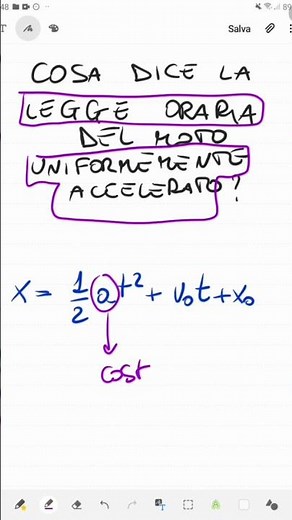 48
89
T
Salva
COSA DICE LA
LEGGE ORARIA
DEL MOTO
UNIFORMEMENTE
ACCELERATO?
x = 1/2 a t² + v₀t + x₀
cost